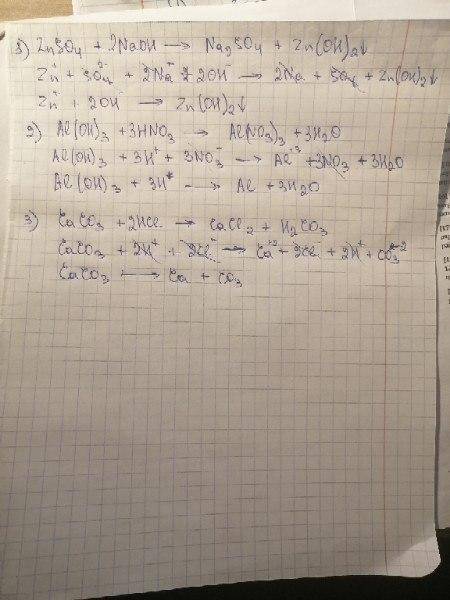 1) ZnSO₄ + 2NaOH → Na₂SO₄ + Zn(OH)₂↓
Zn⁺ + SO₄²⁻ + 2Na⁺ + 2OH⁻ → 2Na + SO₄ + Zn(OH)₂↓
Zn⁺ + 2OH⁻ → Zn(OH)₂↓
2) Al(OH)₃ + 3HNO₃ → Al(NO₃)₃ + 3H₂O
Al(OH)₃ + 3H⁺ + 3NO₃⁻ → Al⁺³ + 3NO₃ + 3H₂O
Al(OH)₃ + 3H⁺ → Al + 3H₂O
3) CaCO₃ + 2HCl → CaCl₂ + H₂CO₃
CaCO₃ + 2H⁺ + 2Cl⁻ → Ca⁺² + 2Cl⁻ + 2H⁺ + CO₃⁻²
CaCO₃ → Ca + CO₃